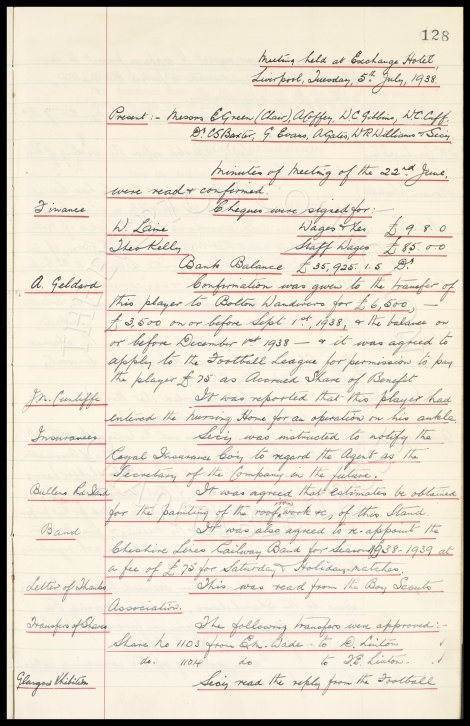 128
Meeting held at Exchange Hotel,
Liverpool, Tuesday, 5th July, 1938.
Present :- Messrs E. Green (Chair), A. Coffey, W.C. Gibbins, W.C. Cuff,
Dr C.S. Baxter, G. Evans, A. Gates, W.R. Williams & Secy
Minutes of Meeting of the 22nd June,
were read & confirmed.
Finance Cheques were signed for:-
W. Laine Wages & Xes £ 9. 8. 0
Theo Kelly Staff Wages £ 85. 0. 0
Bank Balance £ 35,925. 1. 5 Dr
A. Geldard Confirmation was given to the transfer of
this player to Bolton Wanderers for £6,500, —
£3,500 on or before Sept 1st, 1938, & the balance on
or before December 1st 1938 — & it was agreed to
apply to the Football League for permission to pay
the player £75 as Accrued Share of Benefit
J.N. Cunliffe It was reported that this player had
entered the Nursing Home for an operation on his ankle.
Insurances Secy was instructed to notify the
Royal Insurance Coy to regard the Agent as the
Secretary of the Company in the future.
Bullens Rd Stand It was agreed that estimates be obtained
for the painting of the roof, work &c, of this Stand
Band It was also agreed to re-appoint the
Cheshire Lines Railway Band for Season 1938-1939 at
a fee of £75 for Saturday & Holiday matches.
Letter of Thanks This was read from the Boy Scouts
Association.
Transfers of Shares The following transfers were approved:-
Share No 1103 from E.M. Wade to D. Linton
do. 1104 do to T.E. Linton.
Glasgow Exhibition Secy read the reply from the Football